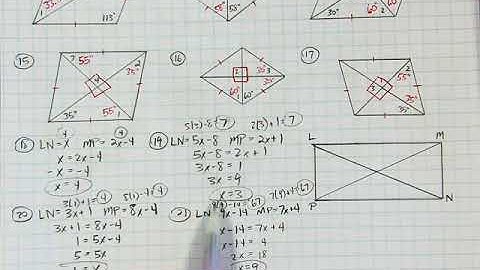 30° 113° 58° 58° 60° 30° 60°
15 7 55° 2 35° 35° 55° 1
16 2 35° 3 60° 1 60°
17 2 55° 3 1 35° 35°
5(1)-8=7 2(3)+1=7
18 LN=x MP=2x-4
4 4
x=2x-4
-x=-4
x=4
19 LN=5x-8 MP=2x+1
5x-8=2x+1
3x-8=1
3x=9
x=3
L M
P N
3(1)+1=4 8(1)-4=4
20 LN=3x+1 MP=8x-4
3x+1=8x-4
1=5x-4
5=5x
1=x
7(9)+4=67
21 LN 9x-14 MP=7x+4
x-14=7x+4
x-14=4
2x=18
x=9